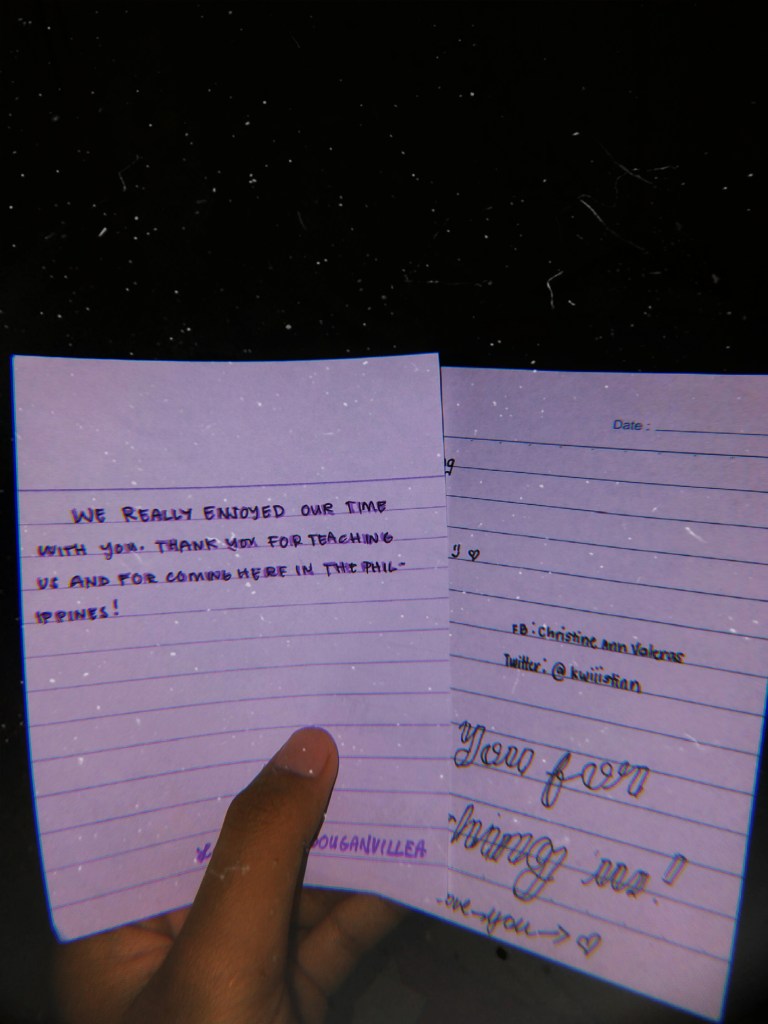 WE REALLY ENJOYED OUR TIME
WITH YOU. THANK YOU FOR TEACHING
US AND FOR COMING HERE IN THE PHIL-
IPPINES!
OUGANVILLEA
Date :
g
y ♡
FB: Christine Ann Valeras
Twitter: @kwiiistian
You for
us!
you → ♡